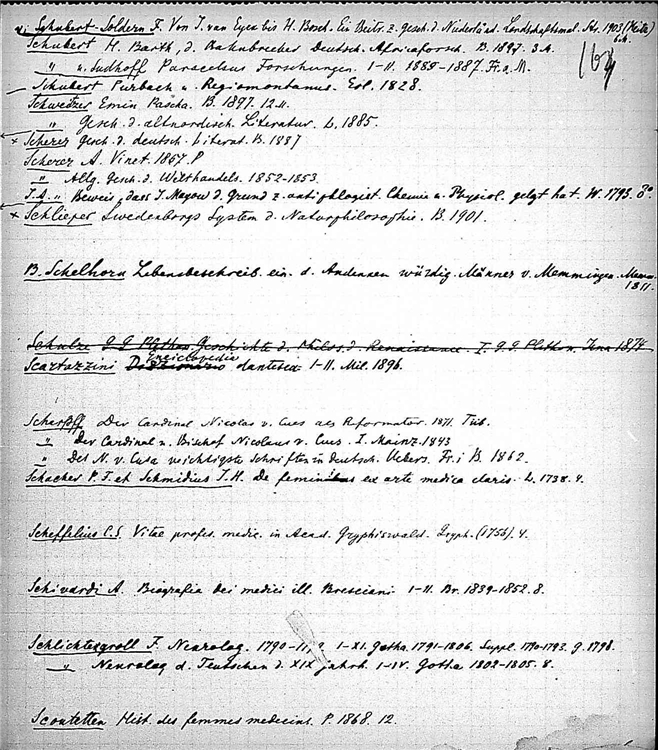 v. Schubert-Soldern F. Von J. van Eyck bis H. Bosch. Ein Beitr. z. gesch. d. Niederländ. Landschaftsmal. Str. 1903 (Heitz)
Schubert H. Barth, d. Bahnbrecher Deutsch. Africaforsch. B. 1897. 3.4.
" u. Sudhoff Paracelsus Forschungen. I-II. 1889-1887. Fr. a. M.
Schubert Purbach u. Regiomontanus. Erl. 1828.
Schweitzer Emin Pascha. B. 1897. 12.11.
" Gesch. d. altnordisch. Literatur. L. 1885.
× Scherer gesch. d. deutsch. Literat. B. 1887
Scherer A. Vinet. 1857. P
" Allg. Gesch. d. Welthandels. 1852-1853.
J. A. " Beweis, dass J. Mayow d. Grund z. antiphlogist. Chemie u. Physiol. gelegt hat. W. 1793. 8°
× Schlieper Swedenborgs System d. Naturphilosophie. B. 1901.
B. Schelhorn Lebensbeschreib. ein. d. Andenken würdig. Männer v. Memmingen. Mem. 1811.
Schulze G G Plethon. Geschichte d. Philos. d. Renaissance. I. G. G. Plethon. Jena 1874
Scartazzini Enciclopedia dantesca I-II. Mil. 1896.
Scharpff Der Cardinal Nicolas v. Cues als Reformator. 1871. Tüb.
" Der Cardinal u. Bischof Nicolaus v. Cues. I. Mainz. 1843
" Des N. v. Cusa wichtigste Schriften in deutsch. Uebers. Fr. i B. 1862.
Schacher P. J. et Schmidius J. H. De feminis ex arte medica claris. L. 1738. 4.
Scheffelius C. S. Vitae profes. medic. in Acad. Gryphiswald. Gryph. (1756). 4.
Schivardi A. Biografia dei medici ill. Bresciani I-II. Br. 1839-1852. 8.
Schlichtegroll F. Neurolog. 1790-11, I-XI. Gotha. 1791-1806. Suppl. 1790-1793. G. 1798.
" Neurolog d. Teutschen d. XIX jahrh. I-IV. Gotha 1802-1805. 8.
Scoutetten Hist. des femmes medecins. P. 1868. 12.